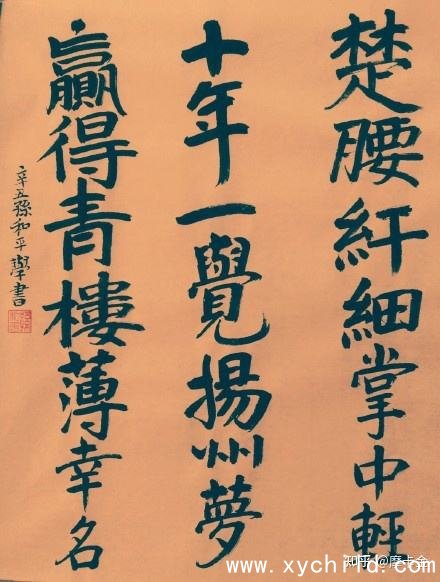 楚腰纤細掌中輕
十年一覺揚州夢
贏得青樓薄幸名
辛丑孫和平學書
知乎 @摩卡金
www.xychrfd.com